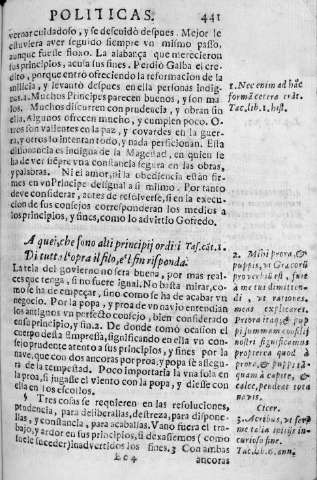 POLITICAS. 441
vernar cuidadoso, y se descuidò despues. Mejor le
estuviera aver seguido siempre vn mismo passo,
aunque fuesse floxo. La alabança que merecieron
sus principios, acusa sus fines. Perdiò Galba el cre-
dito, porque entrò ofreciendo la reformacion de la
milicia, y levantò despues en ella personas indig-
nas.1. Muchos Principes parecen buenos, y son ma-
los. Muchos discurren con prudencia, y obran sin
ella. Algunos ofrecen mucho, y cumplen poco. O-
tros son valientes en la paz, y covardes en la guer-
ra, y otros lo intentan todo, y nada perficionan. Esta
disonancia es indigna de la Magestad, en quien se
ha de ver siẽpre vna constancia segura en las obras,
y palabras. Ni el amor, ni la obediencia estàn fir-
mes en vn Principe desigual a si mismo. Por tanto
deve considerar, antes de resolverse, si en la execu-
cion de sus consejos corresponderan los medios a
los principios, y fines, como lo advertio Gofredo.
A quei, che sono alti principij orditi
Di tutta l'opra il filo, e'l fin risponda.
La tela del govierno no serà buena, por mas real-
ces que tenga, si no fuere igual. No basta mirar, co-
mo se ha de empeçar, sino como se ha de acabar vn
negocio. Por la popa, y proa de vn navio entendian
los antiguos vn perfecto consejo, bien considerado
en su principio, y fin.2. De donde tomò ocasion el
cuerpo desta Empressa, significando en ella vn con-
sejo prudente atento a sus principios, y fines por la
nave, que con dos ancoras por proa, y popa se assegu-
ra de la tempestad. Poco importaria la vna sola en
la proa, si jugasse el viento con la popa, y diesse con
ella en los escollos.
§ Tres cosas se requieren en las resoluciones,
prudencia, para deliberallas, destreza, para dispone-
llas, y constancia, para acaballas. Vano fuera el tra-
bajo, y ardor en sus principios, si dexassemos (como
suele suceder) inadvertidos los fines.3 Con ambas
Ee 4 ancoras
1. Nec enim ad hãc
formã cetera erãt.
Tac. lib. 1. hist.
Tas. cãt. 1.
2. Mihi prora, &
puppis, ut Græcorũ
proverbiũ est, fuit
à me tui dimitten-
di, ut rationes
meas explicares.
Prora itaq, & pup
pi summam consilij
nostri significamus
propterea quod à
prora, & puppi tã-
quam à capite, &
calce, pendeat tota
navis.
Cicer.
3. Acribus, ut fer
me talia initijs in-
curioso fine.
Tac. lib. 6. ann.